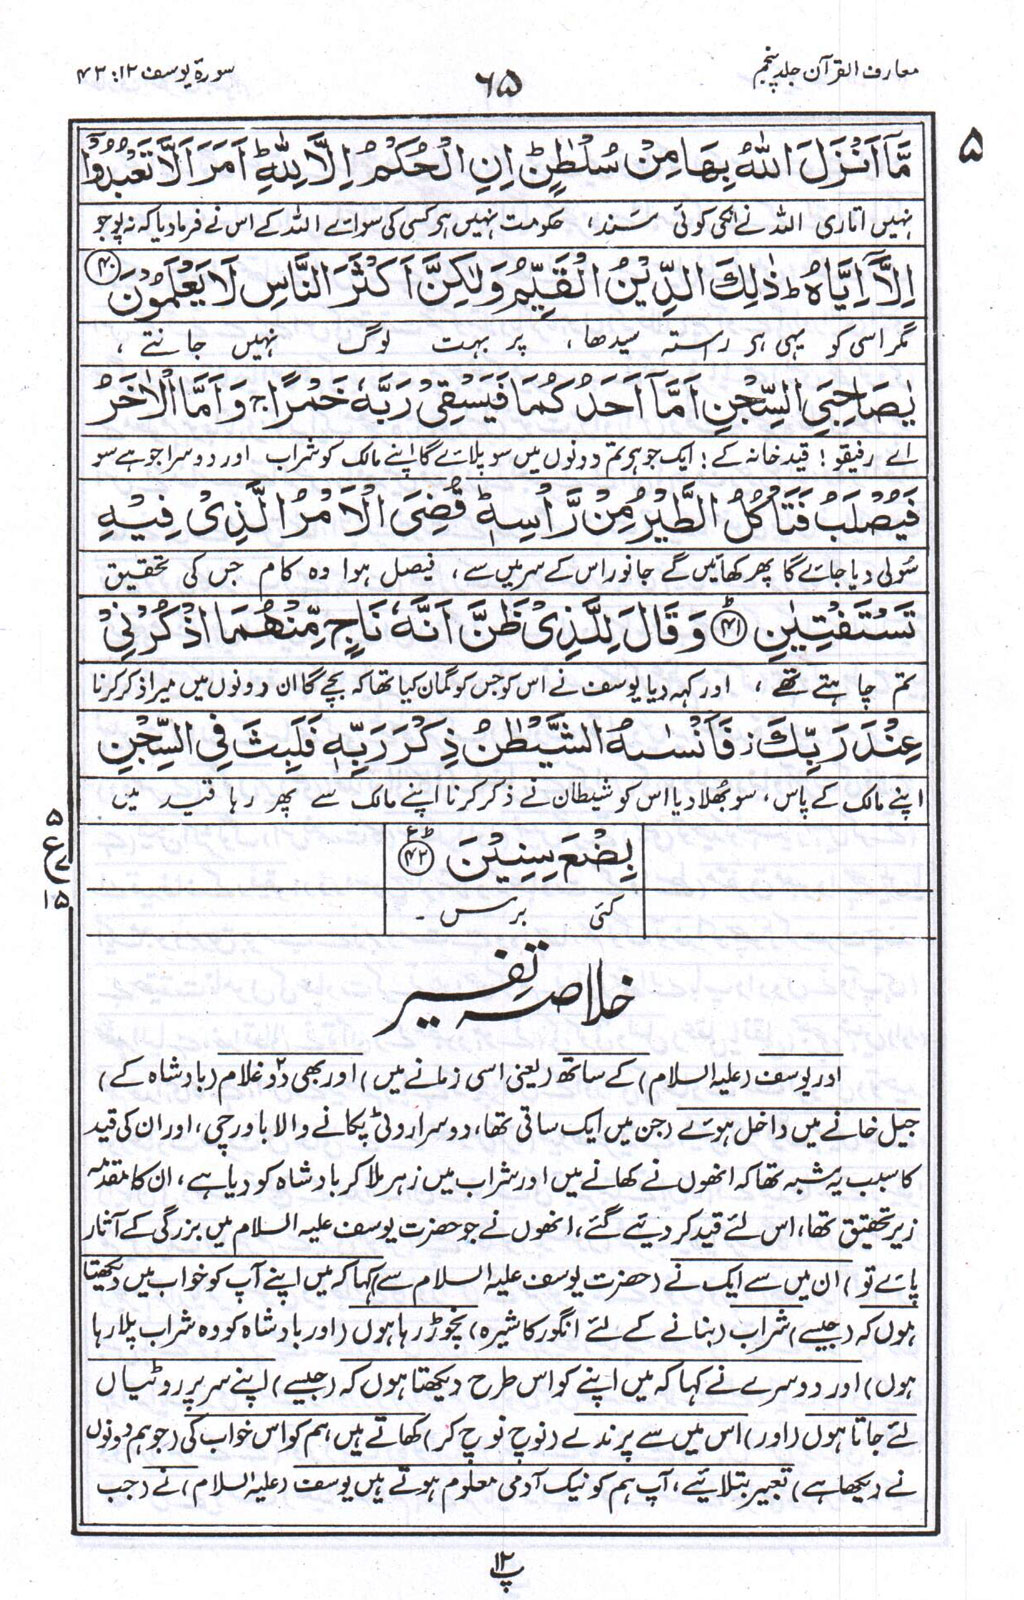 معارف القرآن جلد پنجم
۶۵
سورۃ یوسف ۱۲: ۴۲
۵
مَّآ اَنْزَلَ اللّٰهُ بِهَا مِنْ سُلْطٰنٍ ؕ اِنِ الْحُكْمُ اِلَّا لِلّٰهِ ؕ اَمَرَ اَلَّا تَعْبُدُوْٓا
نہیں اتاری اللہ نے انکی کوئی سند، حکومت نہیں ہر کسی کی سوائے اللہ کے اس نے فرمادیا کہ نہ پوجو
اِلَّآ اِيَّاهُ ؕ ذٰلِكَ الدِّيْنُ الْقَيِّمُ وَلٰكِنَّ اَكْثَرَ النَّاسِ لَا يَعْلَمُوْنَ ﴿۴۰﴾
مگر اسی کو یہی ہر رستہ سیدھا، پر بہت لوگ نہیں جانتے،
يٰصَاحِبَيِ السِّجْنِ اَمَّآ اَحَدُكُمَا فَيَسْقِيْ رَبَّهٗ خَمْرًا ۚ وَاَمَّا الْاٰخَرُ
اے رفیقو! قید خانہ کے؛ ایک جو ہر تم دونوں میں سو پلائے گا اپنے مالک کو شراب اور دوسرا جو ہے سو
فَيُصْلَبُ فَتَاْكُلُ الطَّيْرُ مِنْ رَّاْسِهٖ ؕ قُضِيَ الْاَمْرُ الَّذِيْ فِيْهِ
سولی دیا جائے گا پھر کھائیں گے جانور اس کے سر میں سے، فیصل ہوا وہ کام جس کی تحقیق
تَسْتَفْتِيٰنِ ﴿۴۱﴾ؕ وَقَالَ لِلَّذِيْ ظَنَّ اَنَّهٗ نَاجٍ مِّنْهُمَا اذْكُرْنِيْ
تم چاہتے تھے، اور کہہ دیا یوسف نے اس کو جس کو گمان کیا تھا کہ بچے گا ان دونوں میں میرا ذکر کرنا
عِنْدَ رَبِّكَ ز فَاَنْسٰىهُ الشَّيْطٰنُ ذِكْرَ رَبِّهٖ فَلَبِثَ فِي السِّجْنِ
اپنے مالک کے پاس، سو بھلا دیا اس کو شیطان نے ذکر کرنا اپنے مالک سے پھر رہا قید میں
بِضْعَ سِنِيْنَ ﴿۴۲﴾ؕ ع
۵
ع
۱۵
کئی برس۔
خلاصہ تفسیر
اور یوسف (علیہ السلام) کے ساتھ (یعنی اسی زمانے میں) اور بھی دو غلام (بادشاہ کے)
جیل خانے میں داخل ہوئے (جن میں ایک ساقی تھا، دوسرا روٹی پکانے والا باورچی، اور ان کی قید
کا سبب یہ شبہ تھا کہ انھوں نے کھانے میں اور شراب میں زہر ملا کر بادشاہ کو دیا ہے، ان کا مقدمہ
زیر تحقیق تھا، اس لئے قید کر دیئے گئے، انھوں نے جو حضرت یوسف علیہ السلام میں بزرگی کے آثار
پائے تو) ان میں سے ایک نے (حضرت یوسف علیہ السلام سے) کہا کہ میں اپنے آپ کو خواب میں دیکھتا
ہوں کہ (جیسے) شراب (بنانے کے لئے انگور کا شیرہ) نچوڑ رہا ہوں (اور بادشاہ کو وہ شراب پلا رہا
ہوں) اور دوسرے نے کہا کہ میں اپنے کو اس طرح دیکھتا ہوں کہ (جیسے) اپنے سر پر روٹیاں
لئے جاتا ہوں (اور) اس میں سے پرندے (نوچ نوچ کر) کھاتے ہیں ہم کو اس خواب کی (جو ہم دونوں
نے دیکھا ہے) تعبیر بتلائیے، آپ ہم کو نیک آدمی معلوم ہوتے ہیں یوسف (علیہ السلام) نے (جب
پ ۱۲